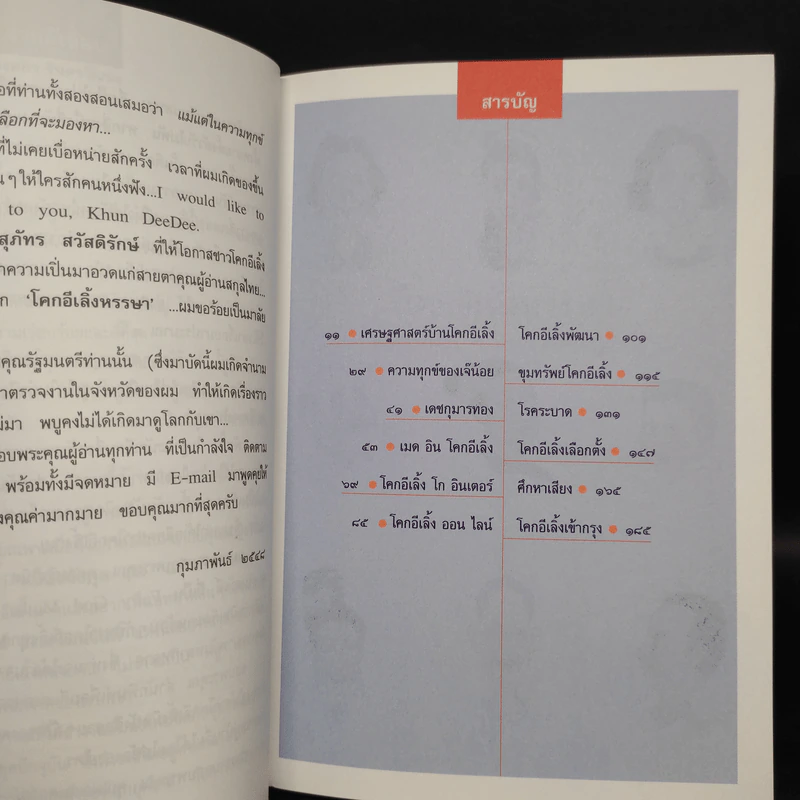 อที่ท่านทั้งสองสอนเสมอว่า แม้แต่ในความทุกข์
ลือกที่จะมองหา...
ที่ไม่เคยเบื่อหน่ายสักครั้ง เวลาที่ผมเกิดของขึ้น
น ๆ ให้ใครสักคนหนึ่งฟัง...I would like to
to you, Khun DeeDee.
สุภัทร สวัสดิรักษ์ ที่ให้โอกาสชาวโคกอีเลิ้ง
าความเปิ่นมาอวดแก่สายตาคุณผู้อ่านสกุลไทย...
ก ‘โคกอีเลิ้งหรรษา’ ...ผมขอร้อยเป็นมาลัย
คุณรัฐมนตรีท่านนั้น (ซึ่งมาบัดนี้ผมเกิดจำนาม
าตรวจงานในจังหวัดของผม ทำให้เกิดเรื่องราว
ม่มา พบูคงไม่ได้เกิดมาดูโลกกับเขา...
อบพระคุณผู้อ่านทุกท่าน ที่เป็นกำลังใจ ติดตาม
พร้อมทั้งมีจดหมาย มี E-mail มาพูดคุยให้
งคุณค่ามากมาย ขอบคุณมากที่สุดครับ
กุมภาพันธ์ ๒๕๔๘
สารบัญ
๑๑ เศรษฐศาสตร์บ้านโคกอีเลิ้ง
๒๙ ความทุกข์ของเจ๊น้อย
๔๑ เดชกุมารทอง
๕๓ เมด อิน โคกอีเลิ้ง
๖๙ โคกอีเลิ้ง โก อินเตอร์
๘๕ โคกอีเลิ้ง ออน ไลน์
โคกอีเลิ้งพัฒนา ๑๐๑
ขุมทรัพย์โคกอีเลิ้ง ๑๑๕
โรคระบาด ๑๓๑
โคกอีเลิ้งเลือกตั้ง ๑๔๗
ศึกหาเสียง ๑๖๕
โคกอีเลิ้งเข้ากรุง ๑๘๕